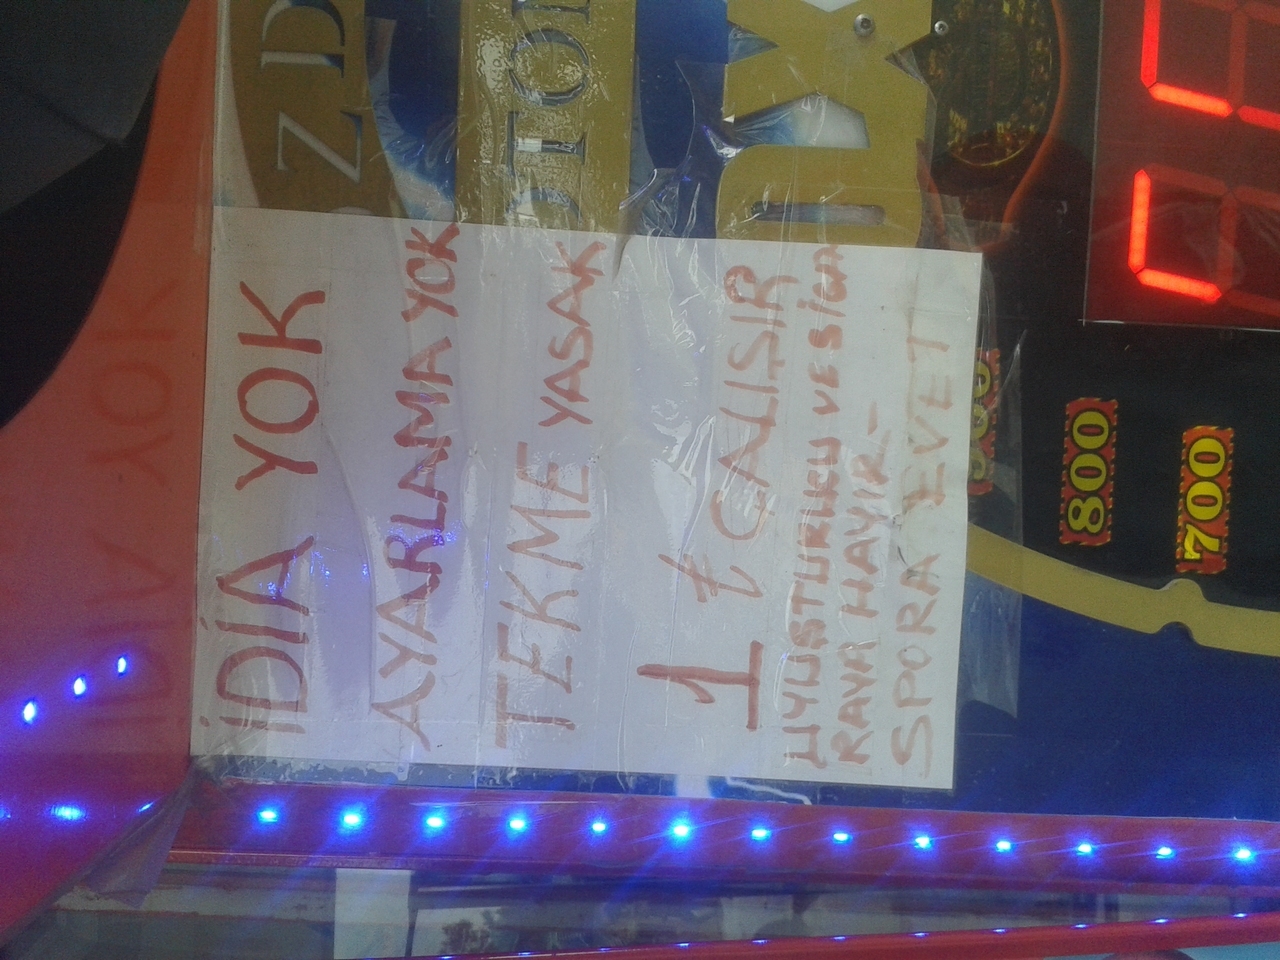 İDİA YOK
AYARLAMA YOK
TEKME YASAK
1 ₺ ÇALIŞIR
UYUŞTURUCU VE SİGA
RAYA HAYIR-
SPORA EVET
800
700